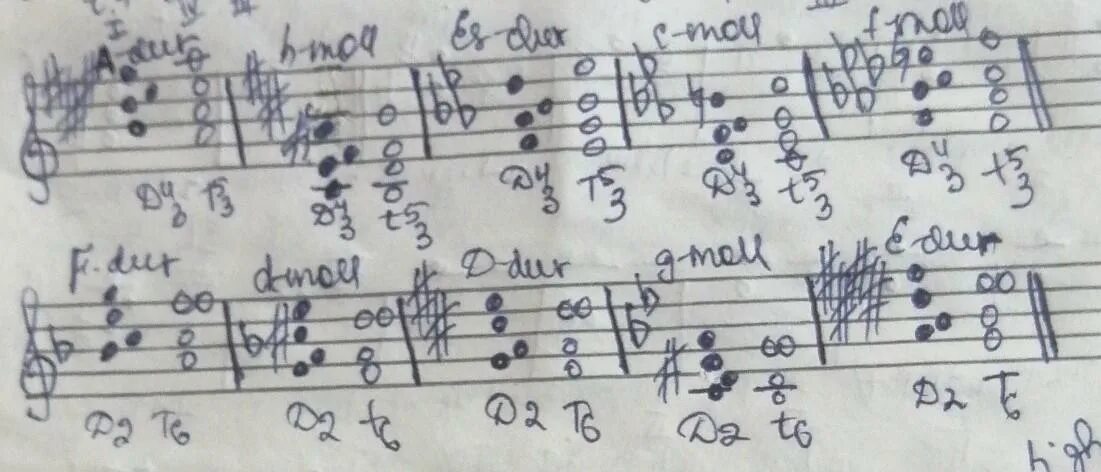 I IV III
A-dur h-moll Es-dur c-moll f-moll
D4/3 T5/3 D4/3 t5/3 D4/3 T5/3 D4/3 t5/3 D4/3 t5/3
F-dur d-moll D-dur g-moll E-dur
D2 T6 D2 t6 D2 T6 D2 t6 D2 T6